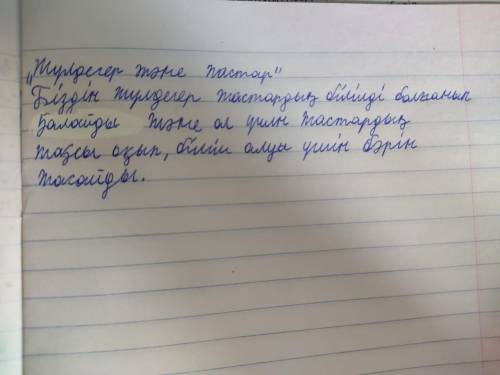 „Жүлдегер және жастар"
Біздін жүлдегер жастардың білілді болғанын
Қалайды және ол үшн жастардың
жақсы оқып, білім алуы үшін бәрін
жасайды.